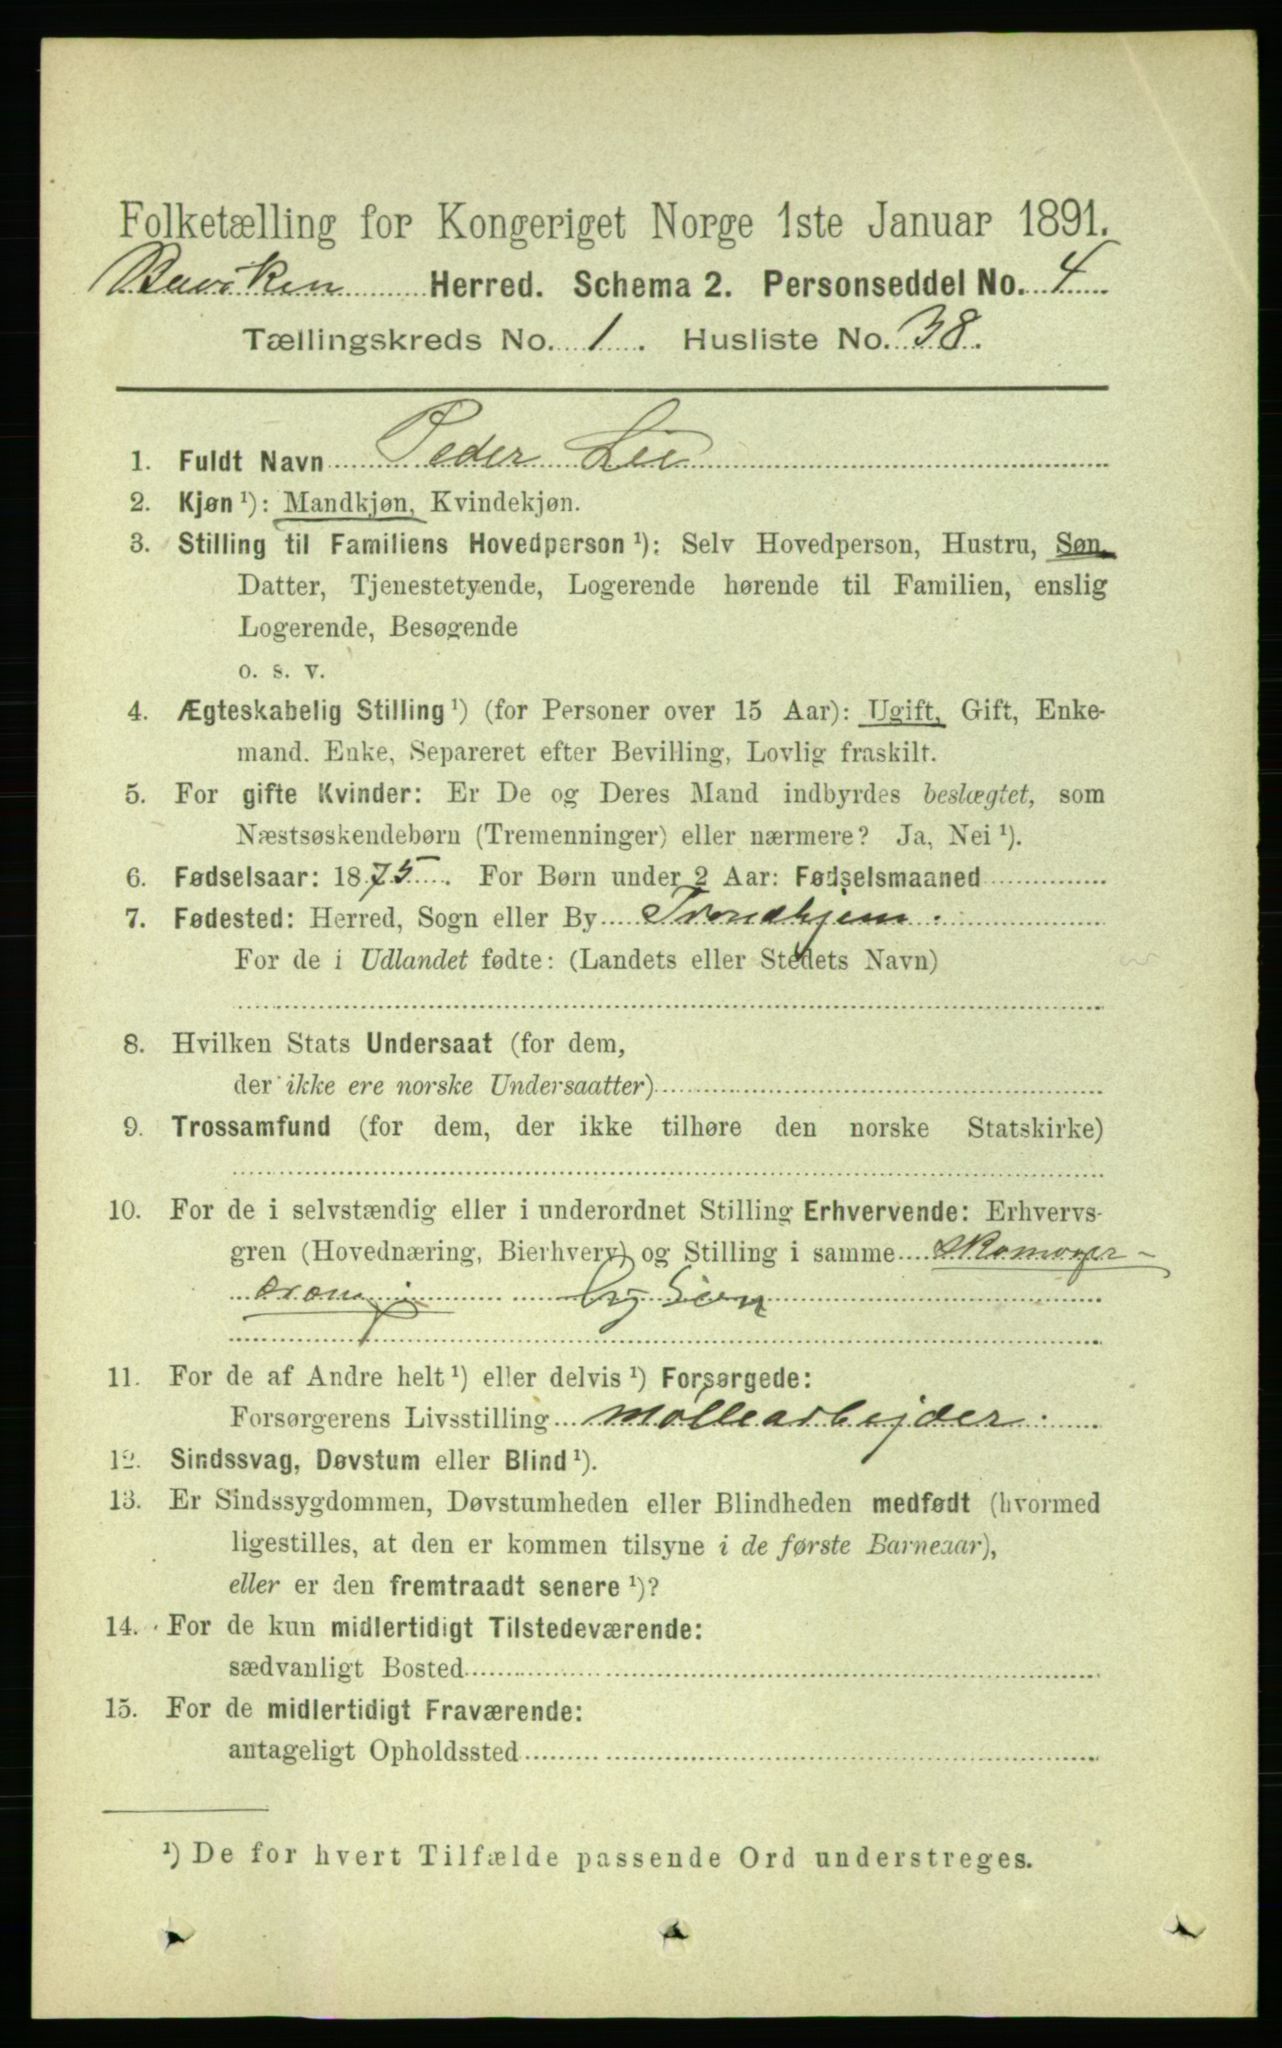 Folketælling for Kongeriget Norge 1ste Januar 1891.
Herred. Schema 2. Personseddel No. 4
Tællingskreds No. 1. Husliste No. 38.
1. Fuldt Navn Peder Lie
2. Kjøn ¹): Mandkjøn, Kvindekjøn.
3. Stilling til Familiens Hovedperson ¹): Selv Hovedperson, Hustru, Søn,
Datter, Tjenestetyende, Logerende hørende til Familien, enslig
Logerende, Besøgende
o. s. v.
4. Ægteskabelig Stilling ¹) (for Personer over 15 Aar): Ugift, Gift, Enke-
mand. Enke, Separeret efter Bevilling, Lovlig fraskilt.
5. For gifte Kvinder: Er De og Deres Mand indbyrdes beslægtet, som
Næstsøskendebørn (Tremenninger) eller nærmere? Ja, Nei ¹).
6. Fødselsaar: 1875. For Børn under 2 Aar: Fødselsmaaned
7. Fødested: Herred, Sogn eller By Trondhjem.
For de i Udlandet fødte: (Landets eller Stedets Navn)
8. Hvilken Stats Undersaat (for dem,
der ikke ere norske Undersaatter)
9. Trossamfund (for dem, der ikke tilhøre den norske Statskirke)
10. For de i selvstændig eller i underordnet Stilling Erhvervende: Erhvervs-
gren (Hovednæring, Bierhverv) og Stilling i samme Skomager-
dreng
11. For de af Andre helt ¹) eller delvis ¹) Forsørgede:
Forsørgerens Livsstilling møllearbejder.
12. Sindssvag, Døvstum eller Blind ¹).
13. Er Sindssygdommen, Døvstumheden eller Blindheden medfødt (hvormed
ligestilles, at den er kommen tilsyne i de første Barneaar),
eller er den fremtraadt senere ¹)?
14. For de kun midlertidigt Tilstedeværende:
sædvanligt Bosted
15. For de midlertidigt Fraværende:
antageligt Opholdssted
¹) De for hvert Tilfælde passende Ord understreges.